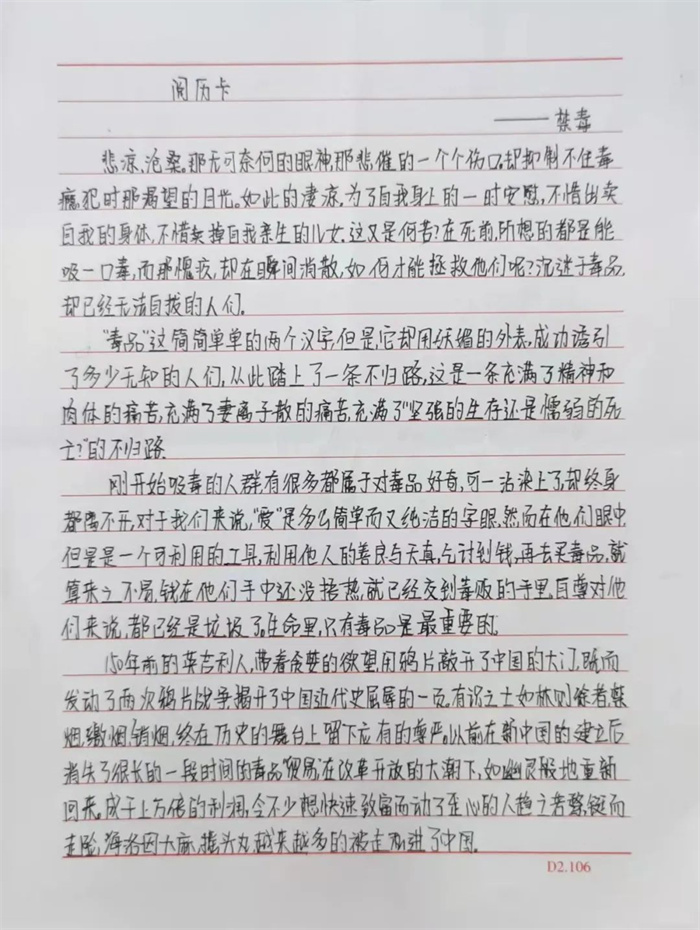 阅历卡
——禁毒
悲凉、沧桑,那无可奈何的眼神,那悲催的一个个伤口,却抑制不住毒
瘾犯时那渴望的目光。如此的凄凉,为了自我身上的一时安慰,不惜出卖
自我的身体,不惜卖掉自我亲生的儿女.这又是何苦?在死前,所想的都是能
吸一口毒,而那愧疚,却在瞬间消散,如何才能拯救他们呢?沉迷于毒品,
却已经无法自拔的人们.
"毒品"这简简单单的两个汉字,但是,它却用妖媚的外表,成功诱引
了多少无知的人们,从此踏上了一条不归路,这是一条充满了精神和
肉体的痛苦,充满了妻离子散的痛苦,充满了"坚强的生存还是懦弱的死
亡?"的不归路.
刚开始吸毒的人群,有很多都属于对毒品好奇,可一沾染上了,却终身
都离不开,对于我们来说,"爱"是多么简单而又纯洁的字眼,然而在他们眼中,
但是是一个可利用的工具,利用他人的善良与天真,乞讨到钱,再去买毒品,就
算来之不易,钱在他们手中还没捂热,就已经交到毒贩的手里.自尊对他
们来说,都已经是垃圾了。生命里,只有毒品是最重要的.
150年前的英吉利人,带着贪婪的欲望用鸦片敲开了中国的大门,既而
发动了两次鸦片战争揭开了中国近代史屈辱的一页.有识之士如林则徐者,禁
烟,缴烟,销烟,终在历史的舞台上留下应有的尊严。以前在新中国的建立后
消失了很长的一段时间的毒品贸易,在改革开放的大潮下,如幽灵般地重新
回来.成千上万倍的利润,令不少想快速致富而动了歪心的人趋之若鹜,铤而
走险,海洛因大麻,摇头丸越来越多的被走私进了中国.
D2.106